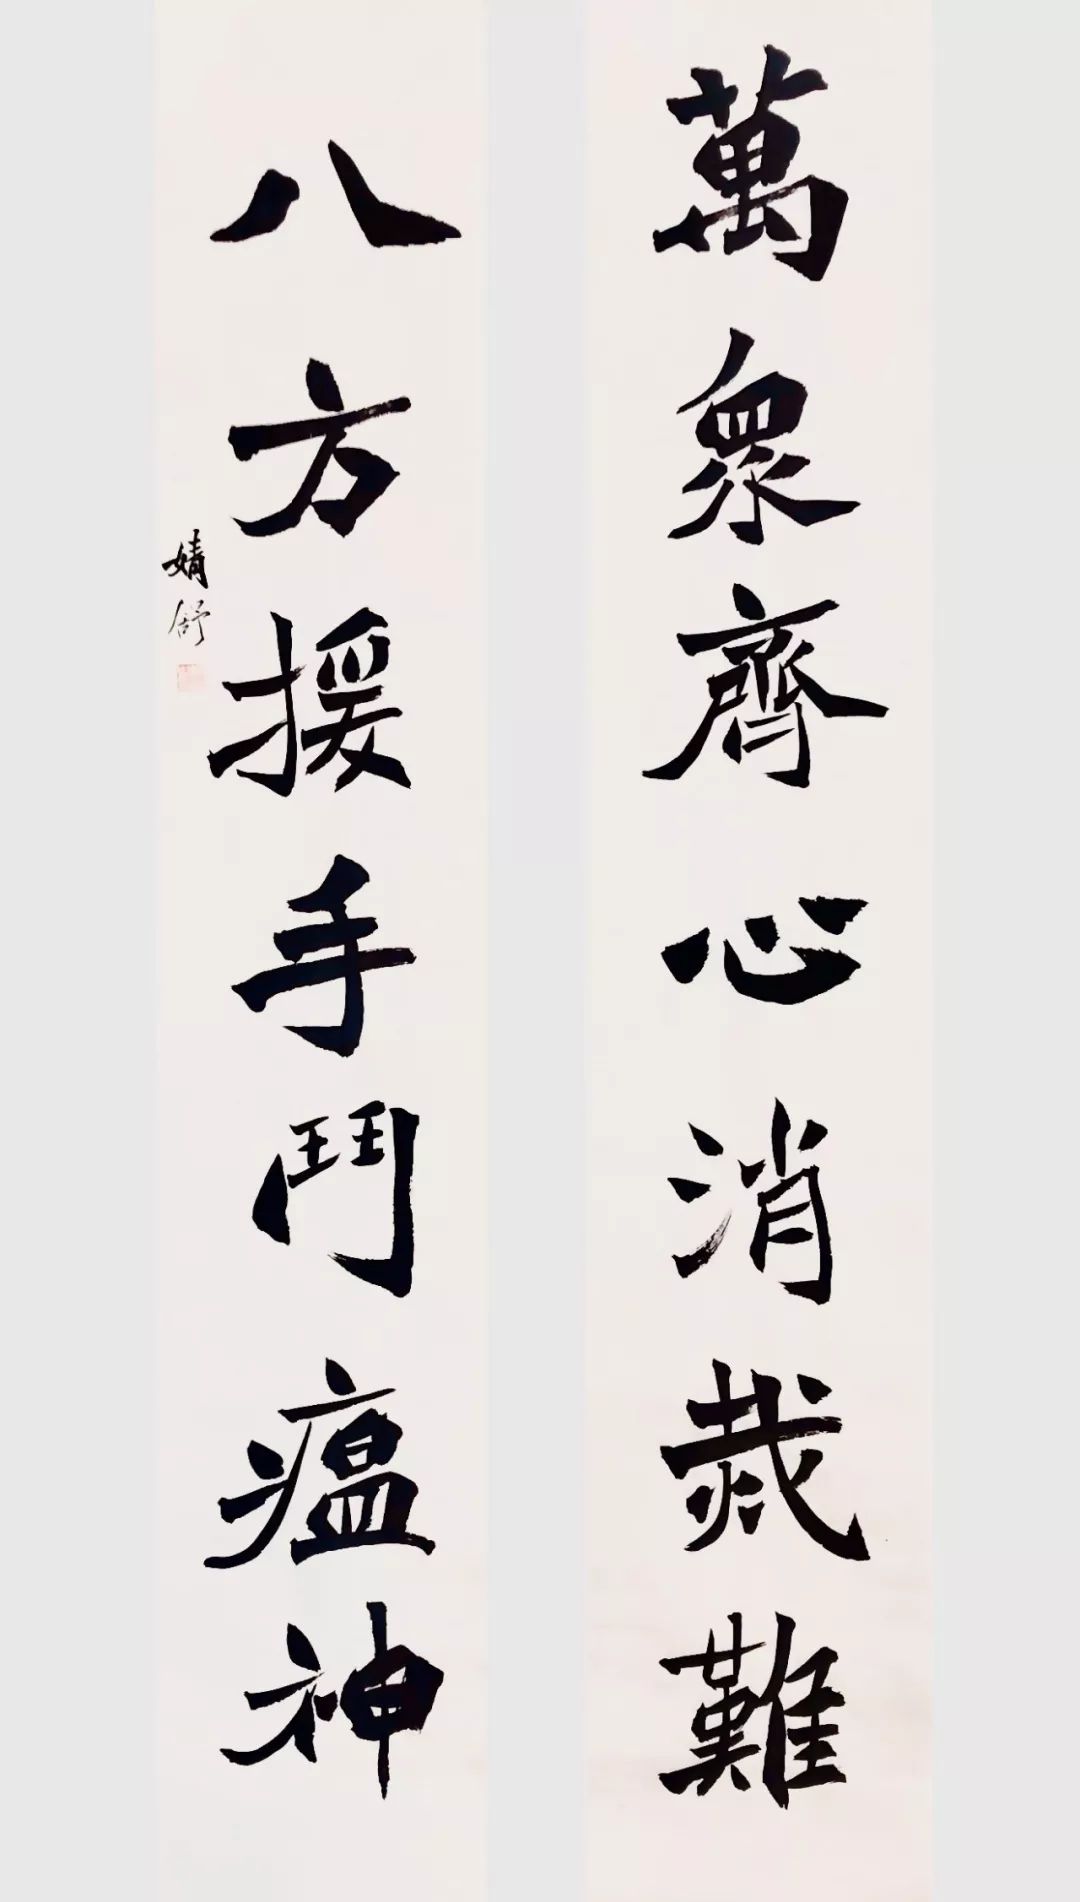 萬眾齊心消烖難
八方援手鬥瘟神
婧舒